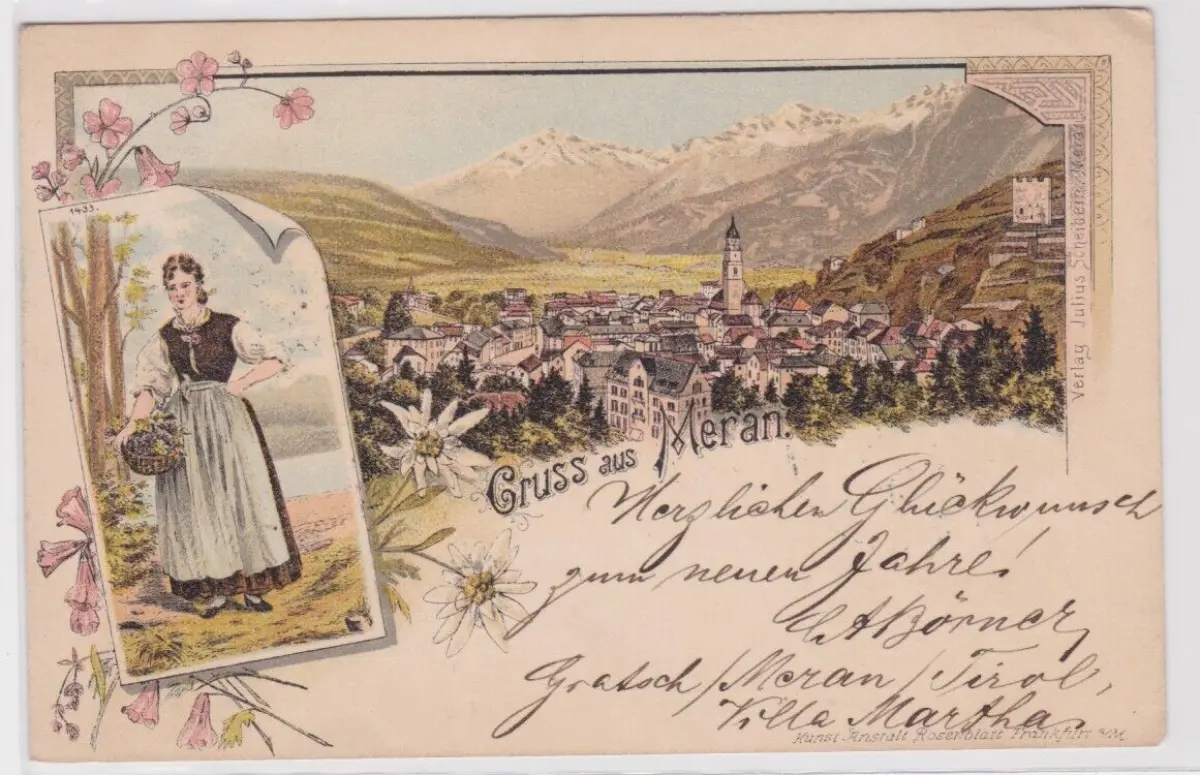 1433.
Verlag Julius Schreibein, Meran
Gruss aus Meran.
Herzlichen Glückwunsch
zum neuen Jahre!
Börner,
Gratsch/Meran/Tirol,
Villa Martha.
Kunst-Anstalt Rosenblatt Frankfurt a/M.